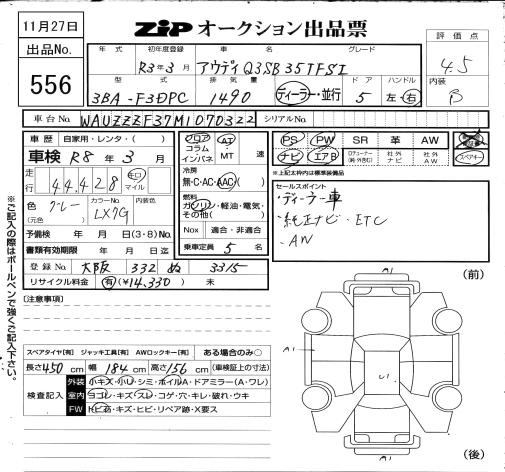 11月27日
ZIP オークション出品票
出品No.
556
評価点
4.5
内装
B
年式 初年度登録 車名 グレード
R3年3月 アウディQ3SB 35TFSI
型式 排気量 ドア ハンドル
3BA-F3DPC 1490 ディーラー・並行 5 左・右
車台No. WAUZZZF37M1070322 シリアルNo.
車歴 自家用・レンタ・( )
車検 R8年3月
走行 44,428 キロ マイル
色 グレー (元色) カラーNo. LX7G 内装色
予備検 年 月 日(3・8)No.
書類有効期限 年 月 日迄
登録No. 大阪 332 ぬ 3315
リサイクル料金 有(¥14,330) 未
フロア コラム インパネ AT MT 速
冷房
無・C・AC・AAC( )
燃料
ガソリン・軽油・電気・その他( )
Nox 適合・非適合
乗車定員 5 名
PS PW SR 革 AW
ナビ エアB 社外ナビ 社外AW
スペアキー
※上記太枠内は標準装備品
セールスポイント
・ディーラー車
・純正ナビ・ETC
・AW
※ご記入の際はボールペンで強くご記入下さい。
[注意事項]
スペアタイヤ[有] ジャッキ工具[有] AWロックキー[有] ある場合のみ○
長さ450cm 幅184cm 高さ156cm (車検証上の寸法)
検査記入
外装 小キズ・小U・シミ・ホイルA・ドアミラー(A・ワレ)
室内 ヨゴレ・キズ・スレ・コゲ・穴・キレ・破れ・ウキ
FW トビ石・キズ・ヒビ・リペア跡・X要ス
(前)
A1
A1
U1
A1
(後)